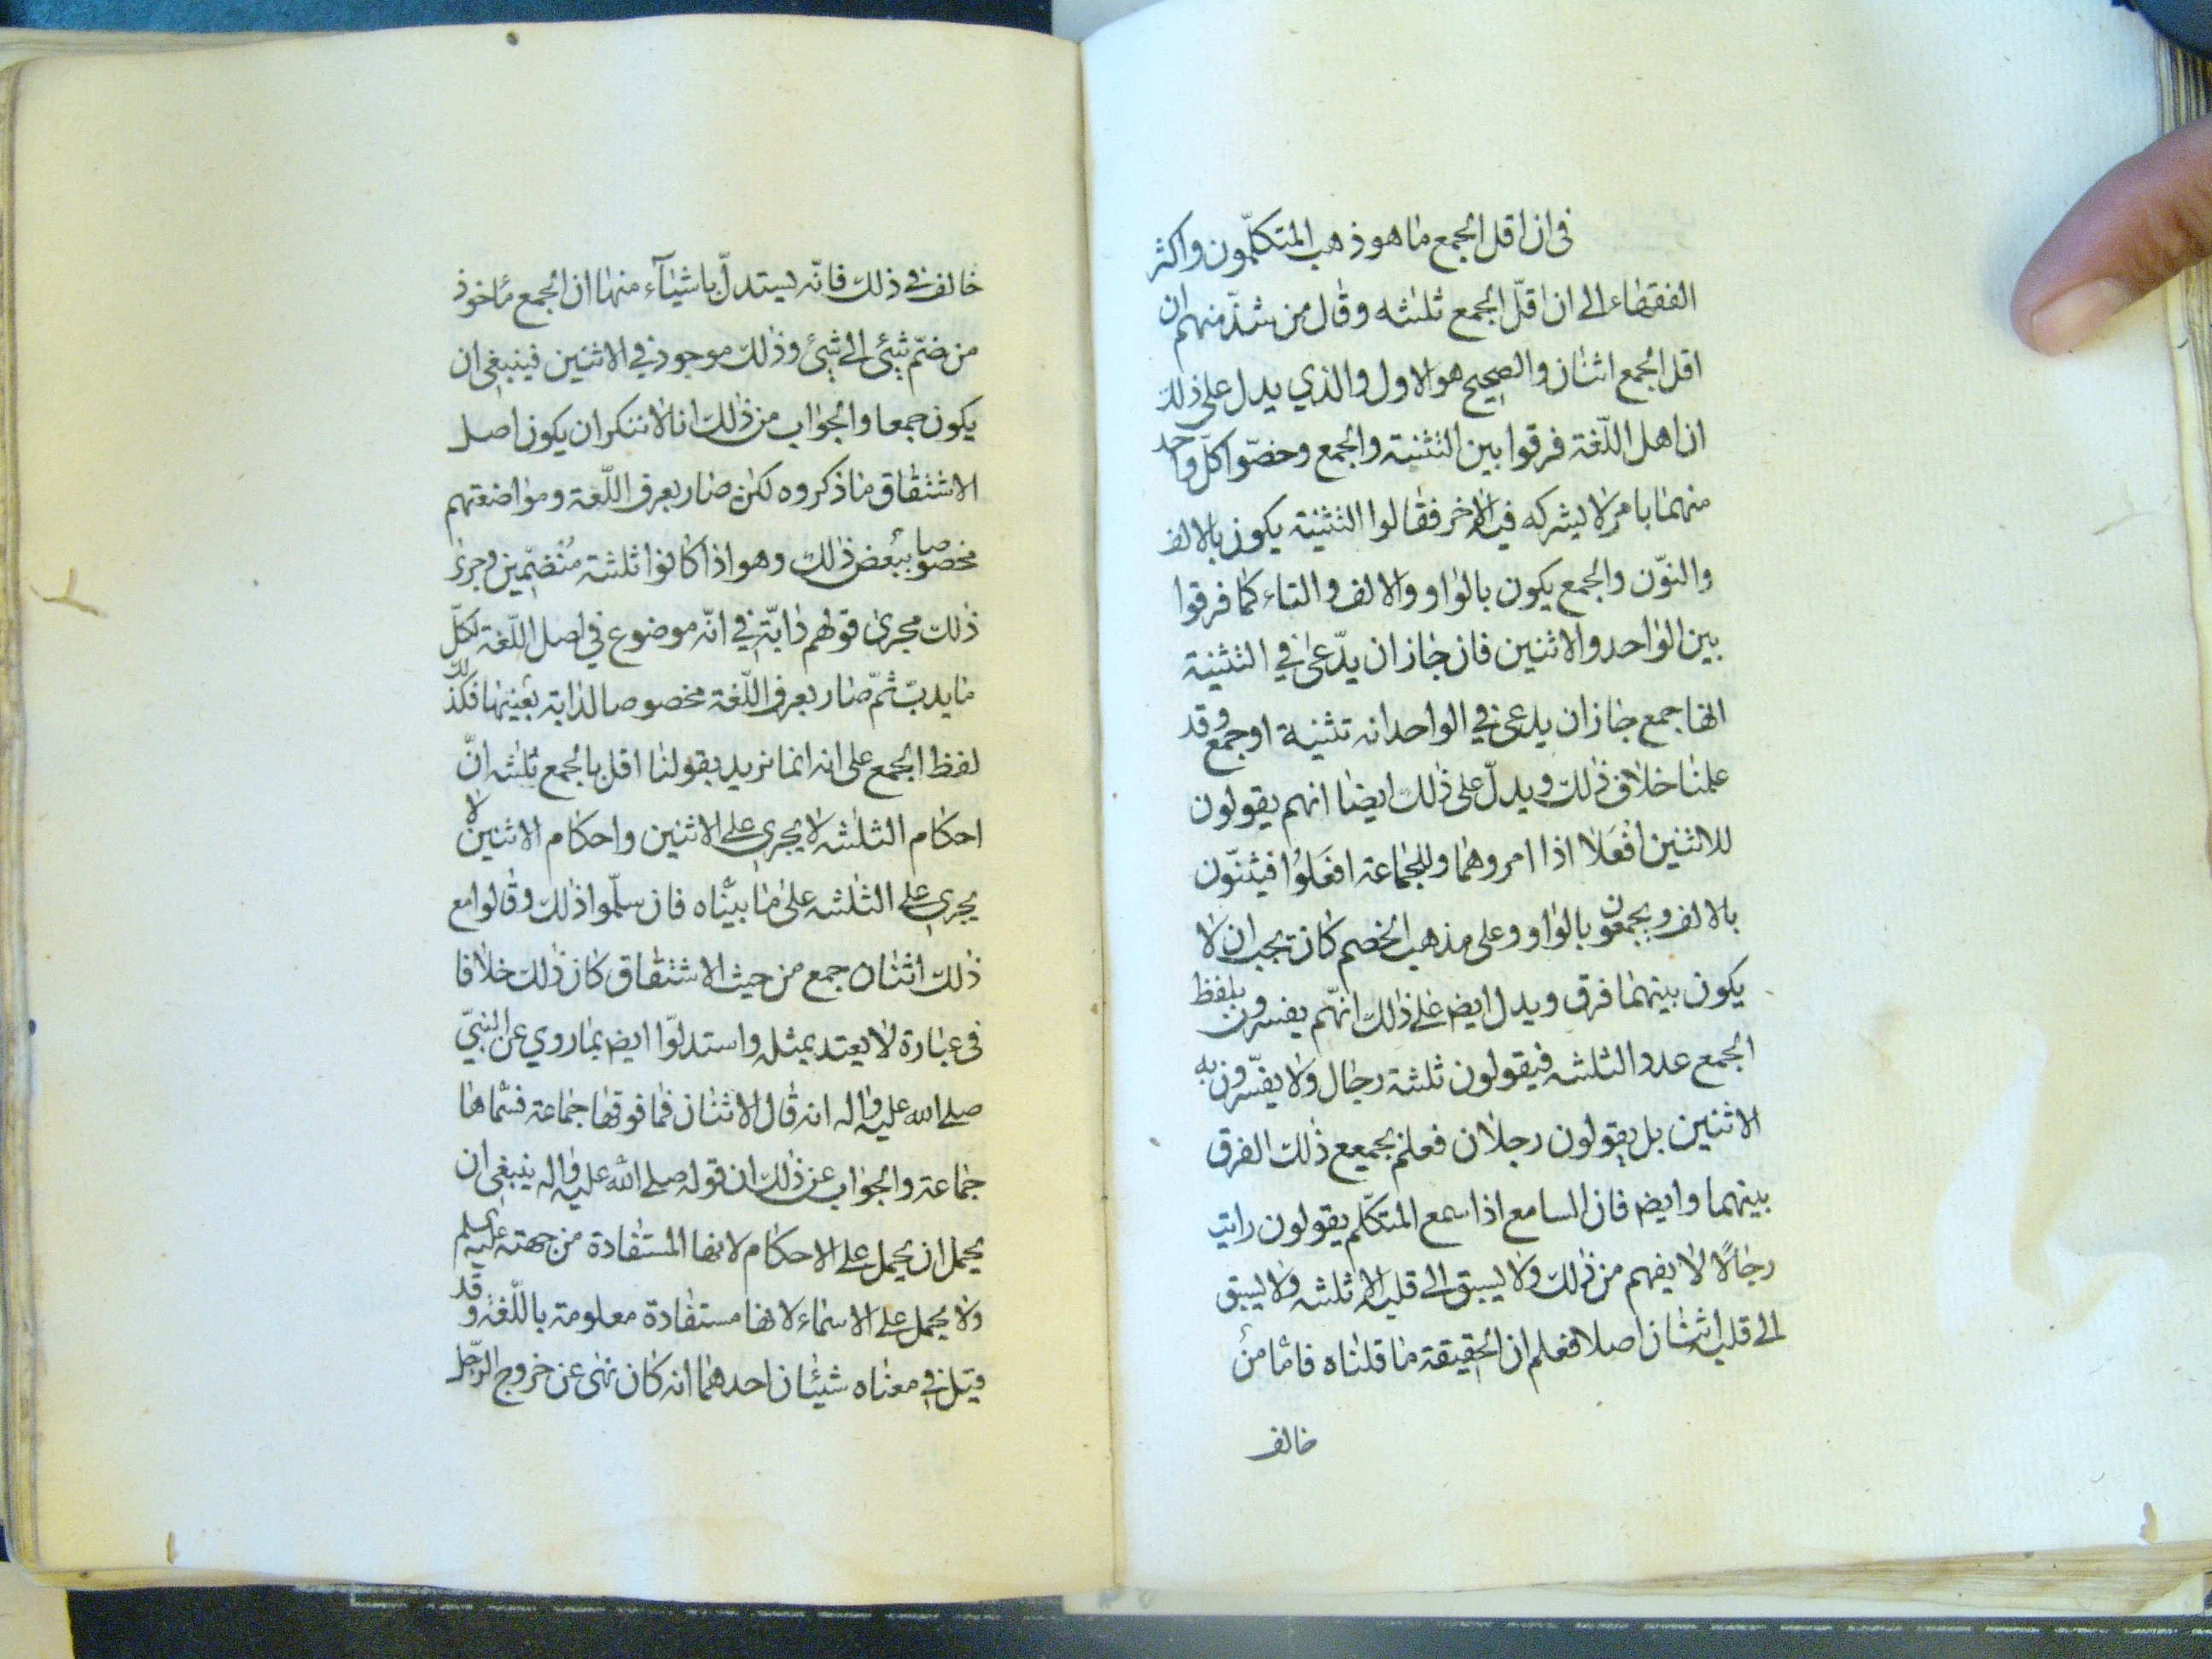 فى ان اقل الجمع ما هو ذهب المتكلّمون واكثر
الفقهاء الى ان اقلّ الجمع ثلثه وقال من شذّ منهم ان
اقل الجمع اثنان والصحيح هو الاول والذي يدل على ذلك
ان اهل اللّغة فرقوا بين التثنية والجمع وخصّوا كلّ واحد
منهما بامر لا يشركه فيه الاخر فقالوا التثنية يكون بالالف
والنوّن والجمع يكون بالواو والالف والتاء كما فرقوا
بين الواحد والاثنين فان جاز ان يدّعى في التثنية
انها جمع جاز ان يدعى في الواحد انه تثنية او جمع وقد
علمنا خلاف ذلك ويدلّ على ذلك ايضا انهم يقولون
للاثنين افْعَلا اذا امروهما وللجماعة افعَلُوا فيثنّون
بالالف ويجمعون بالواو وعلى مذهب الخصم كان يجب ان لا
يكون بينهما فرق ويدل ايض على ذلك انّهم يفسرون بلفظ
الجمع عدد الثلثه فيقولون ثلثة رجال ولا يفسّرون به
الاثنين بل يقولون رجلان فعلم بجميع ذلك الفرق
بينهما وايض فان السامع اذا سمع المتكلّم يقولون رايت
رجالًا لا يفهم من ذلك ولا يسبق الى قلبه الا ثلثه ولا يسبق
الى قلبه اثنان اصلا فعلم ان الحقيقة ما قلناه فامّا من
خالف
خالف في ذلك فانّه يستدلّ باشيآء منها ان الجمع مأخوذ
من ضمّ شئ الى شئ وذلك موجود في الاثنين فينبغي ان
يكون جمعا والجواب من ذلك انا لا ننكر ان يكون اصل
الاشتقاق ما ذكروه لكن صار بعرف اللّغة ومواضعتهم
مخصوصا ببعض ذلك وهو اذا كانوا ثلثة مُنْضمّين وجرى
ذلك مجرى قولهم دابّة في انّه موضوع في اصل اللّغة لكلّ
ما يدبّ ثمّ صار بعرف اللّغة مخصوصا لدابة بعينها فكذلك
لفظ الجمع على انه انما نريد بقولنا اقل بالجمع ثلثه انّ
احكام الثلثه لا يجري على الاثنين واحكام الاثنين لا
يجري على الثلثه على ما بيّنّاه فان سلّموا ذلك وقالوا مع
ذلك اثنان جمع من حيث الاشتقاق كان ذلك خلافا
فى عبارة لا يعتد بمثله واستدلوّا ايض بما روي عن النبيّ
صلى الله عليه واله انه قال الاثنان فما فوقها جماعة فسّماها
جماعة والجواب عن ذلك ان قوله صلى الله عليه واله ينبغي ان
يحمل ان يحمل على الاحكام لانها المستفادة من جهته عليه السلم
ولا يحمل على الاسماء لانها مستفادة معلومة باللّغة وقد
قيل في معناه شيئان احدهما انه كان نهى عن خروج الرّجل